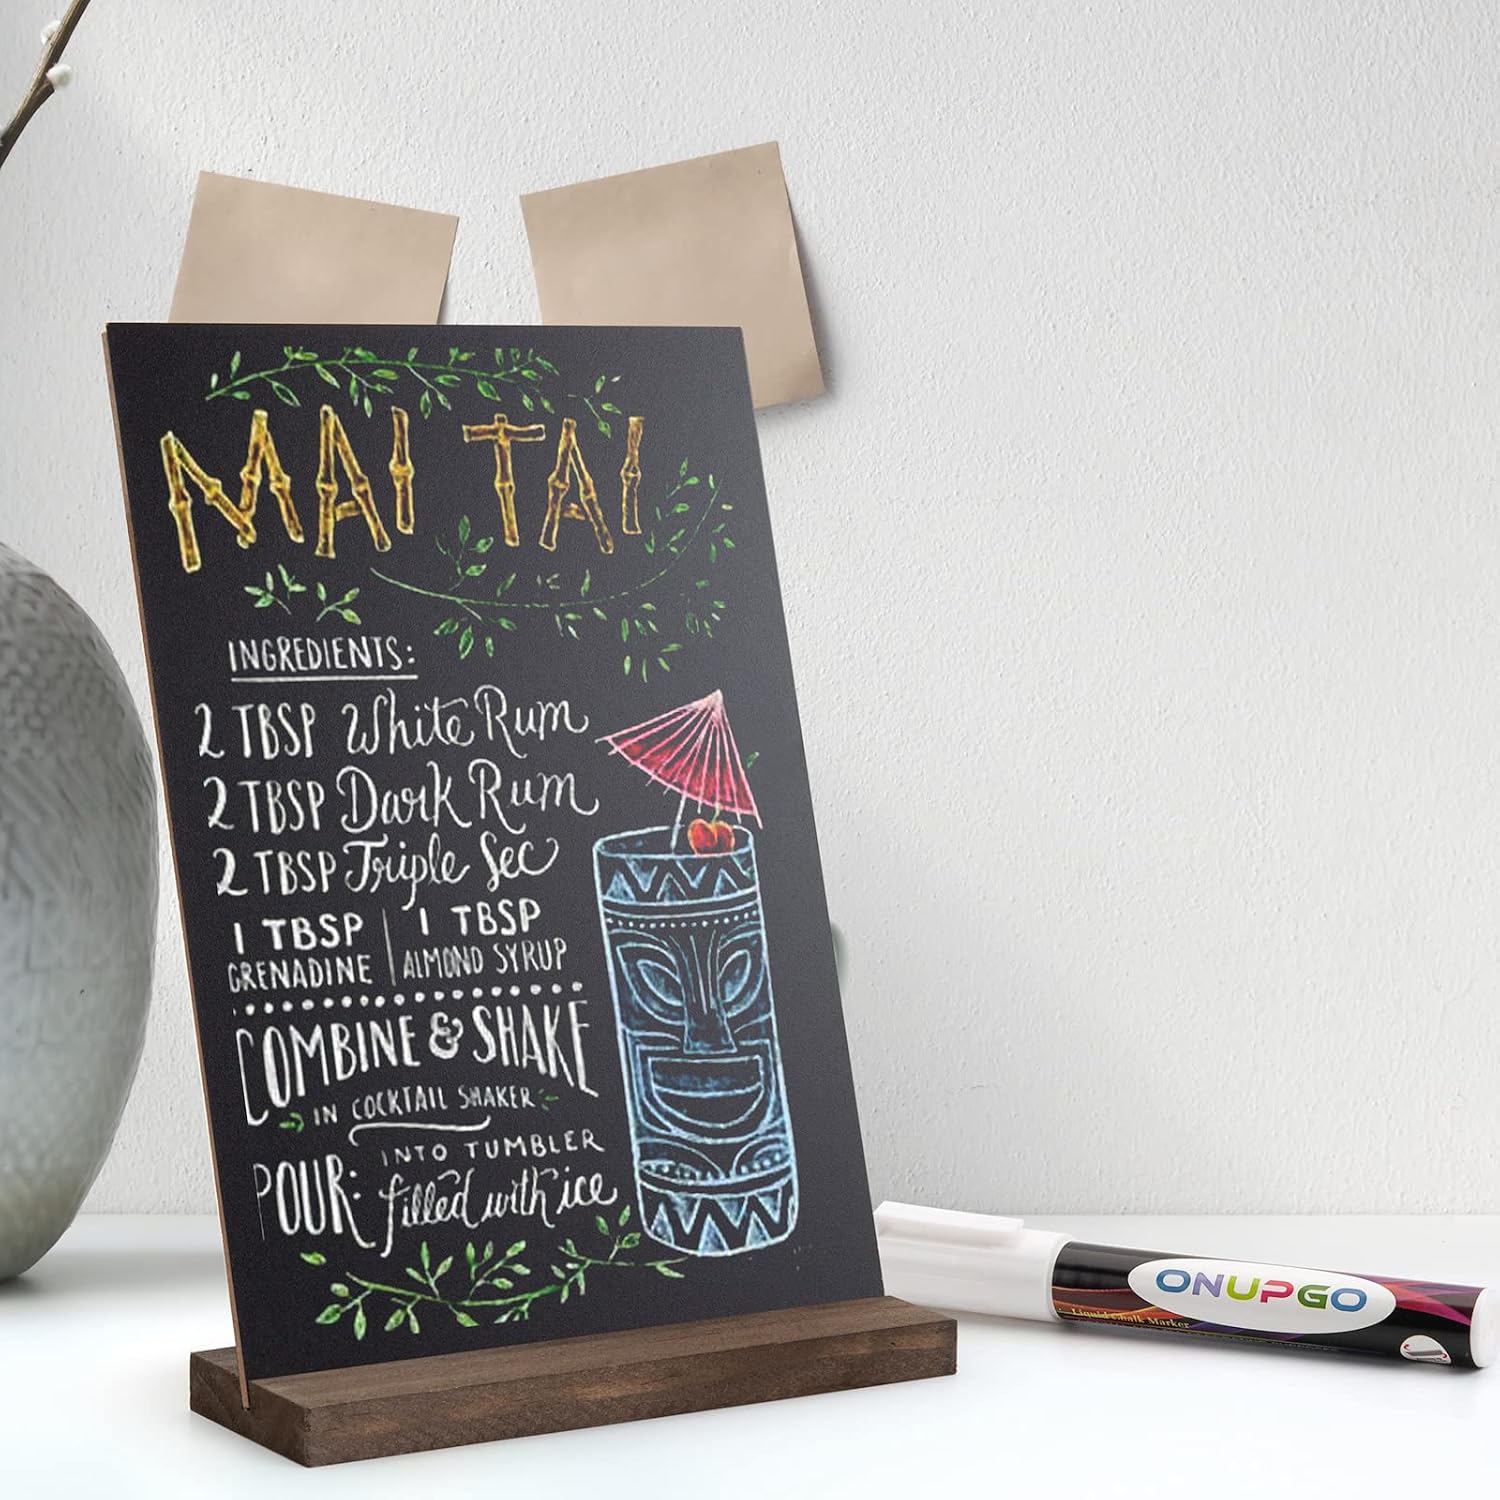 MAI TAI
INGREDIENTS:
2 TBSP White Rum
2 TBSP Dark Rum
2 TBSP Triple Sec
1 TBSP GRENADINE | 1 TBSP ALMOND SYRUP
COMBINE & SHAKE
IN COCKTAIL SHAKER
POUR: INTO TUMBLER
filled with ice
ONUPGO
Liquid Chalk Marker